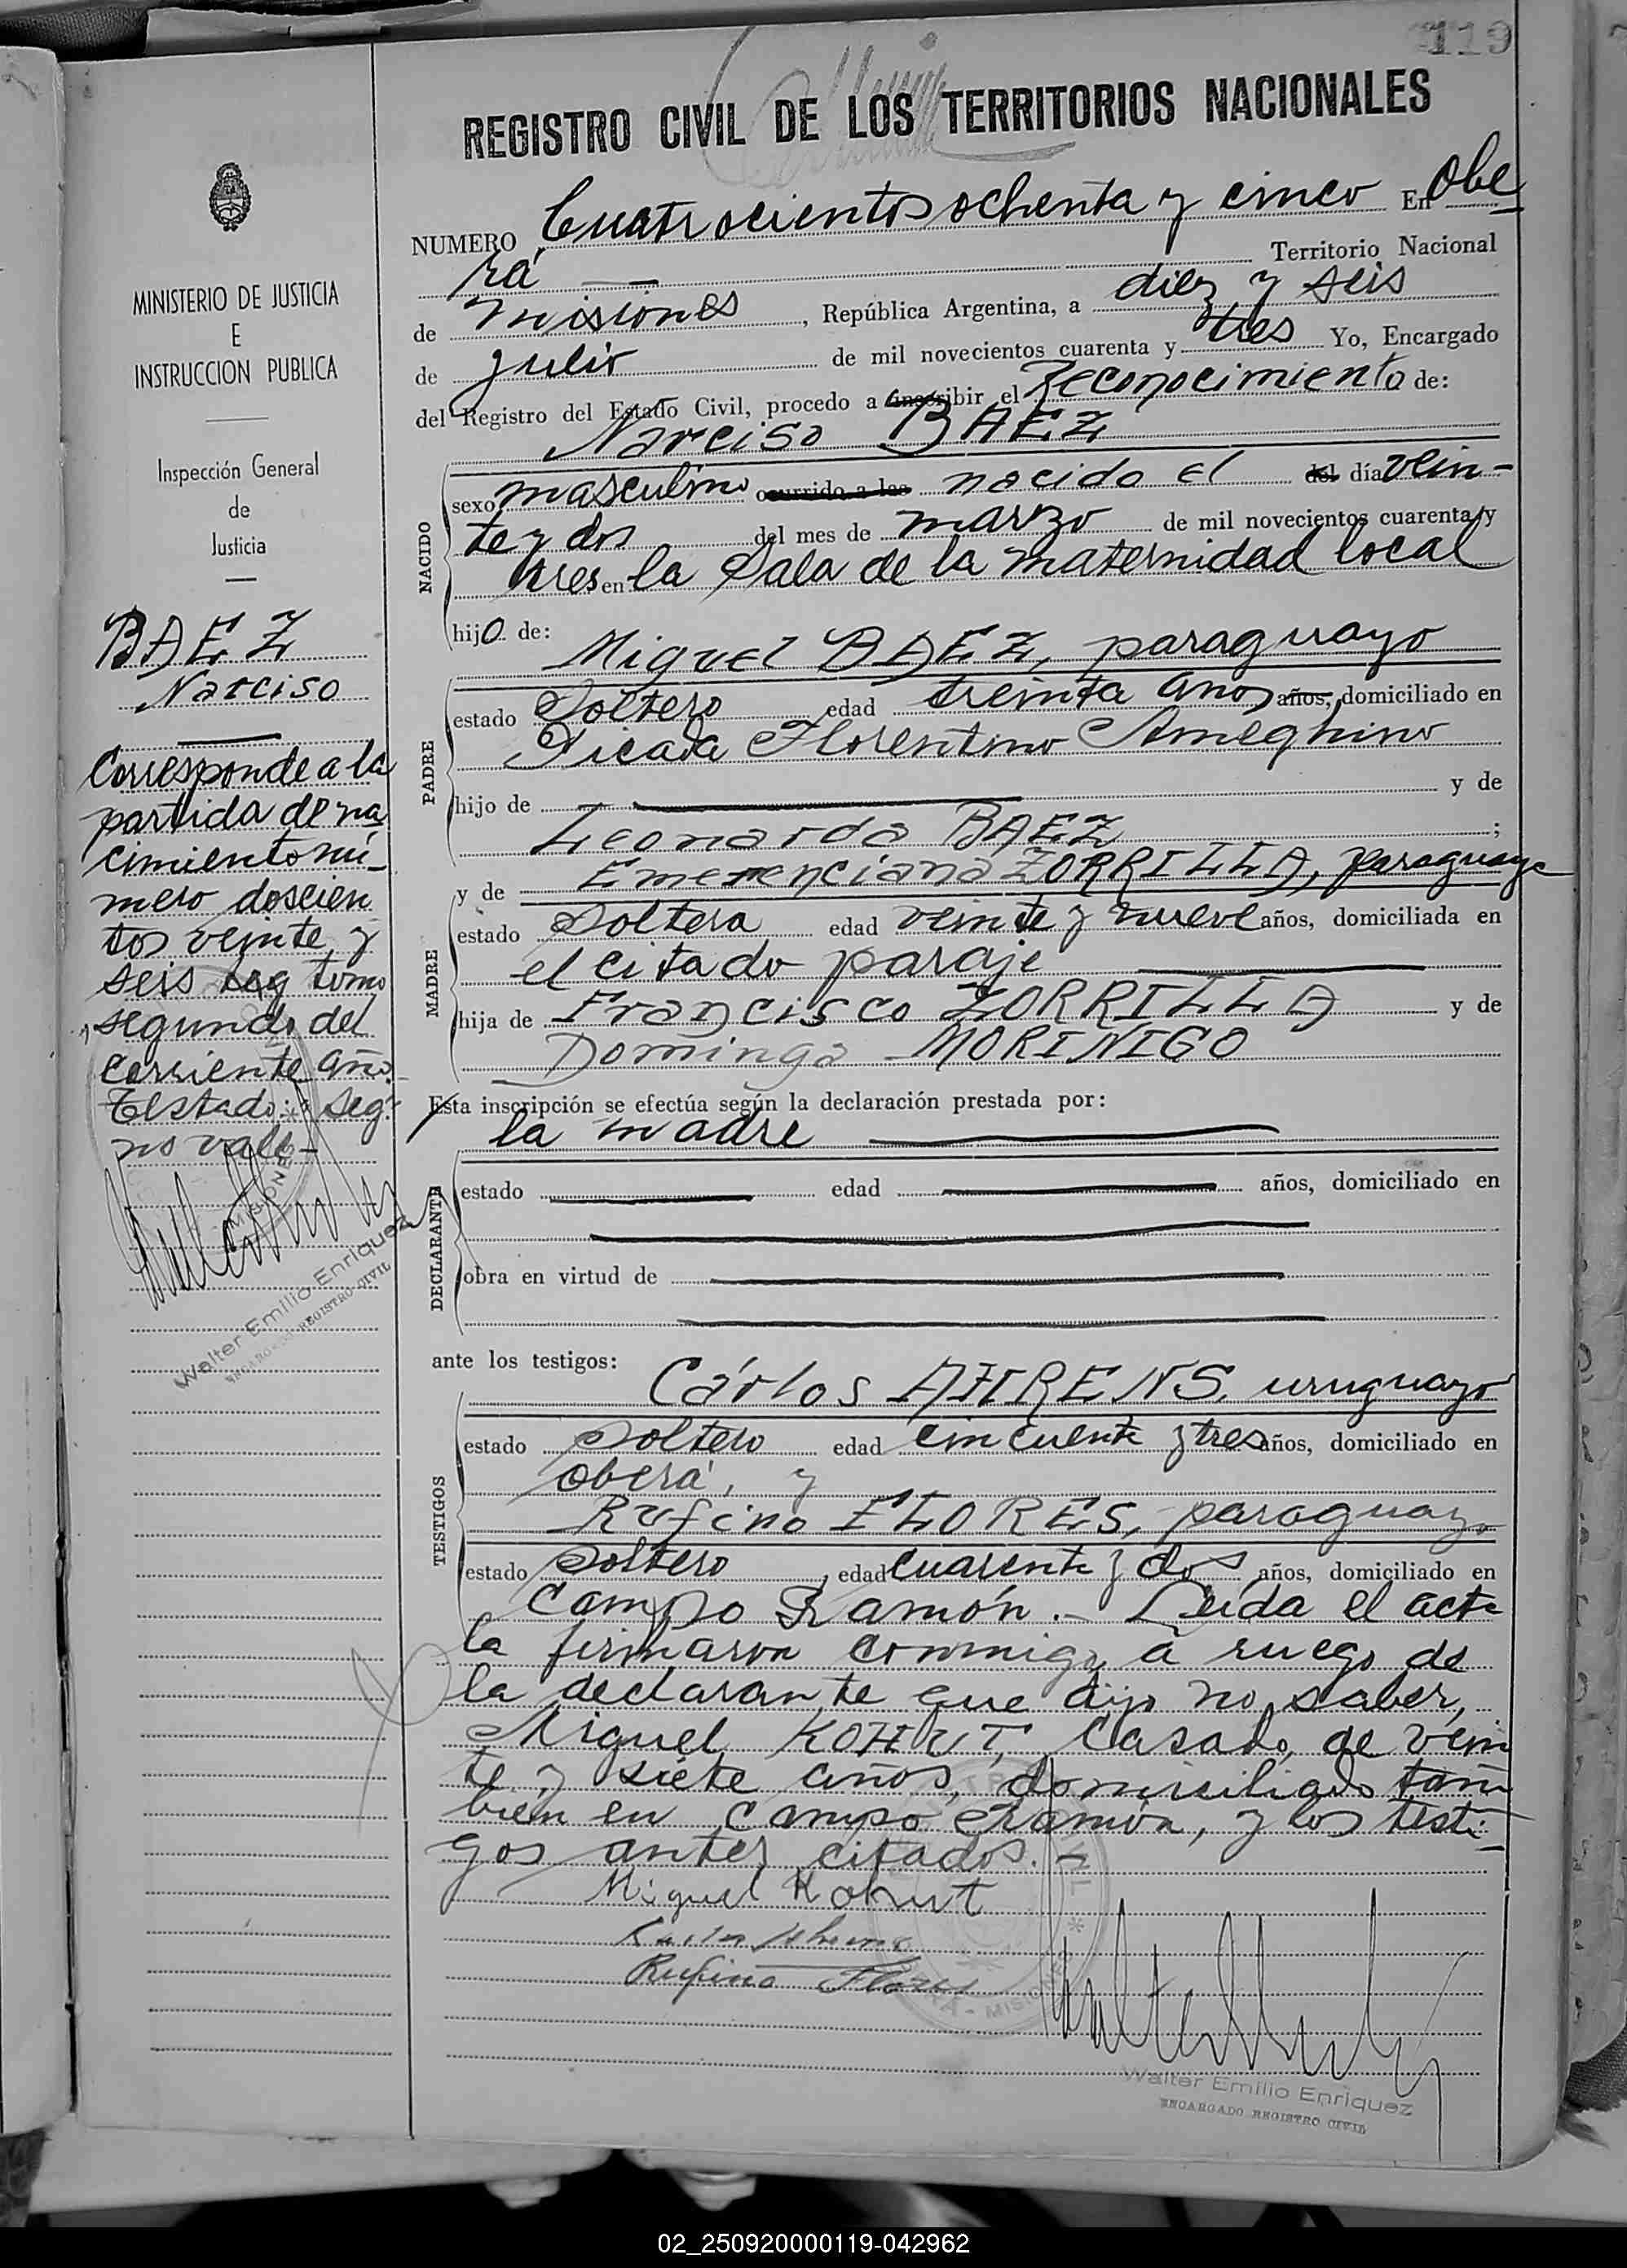 119
REGISTRO CIVIL DE LOS TERRITORIOS NACIONALES
NUMERO Cuatrocientos ochenta y cinco En Obe
rá Territorio Nacional
de Misiones, República Argentina, a diez y seis
de julio de mil novecientos cuarenta y tres Yo, Encargado
del Registro del Estado Civil, procedo a inscribir el Reconocimiento de:
Narciso BAEZ
NACIDO
sexo masculino ocurrido a las nacido el del día vein-
te y dos del mes de marzo de mil novecientos cuarenta y
tres en la Sala de la maternidad local
hijo de:
Miguel BAEZ, paraguayo
PADRE
estado Soltero edad treinta años años, domiciliado en
Picada Florentino Ameghino
hijo de y de
Leonarda BAEZ ;
y de Emerenciana ZORRILLA, paraguaya
MADRE
estado Soltera edad veinte y nueve años, domiciliada en
el citado paraje
hija de Francisco ZORRILLA y de
Dominga MORINIGO
Esta inscripción se efectúa según la declaración prestada por:
la madre
DECLARANTE
estado edad años, domiciliado en
obra en virtud de
ante los testigos:
Cárlos AHRENS, uruguayo
TESTIGOS
estado soltero edad cincuenta y tres años, domiciliado en
Oberá, y
Rufino FLORES, paraguayo
estado Soltero, edad cuarenta y dos años, domiciliado en
Campo Ramón.- Leida el acta
la firmaron conmigo, a ruego de
la declarante que dijo no saber,
Miguel KOHUT, casado, de vein
te y siete años, domiciliado tam
bién en Campo Ramón, y los testi-
gos antes citados.-
Miguel Kohut
Rufino Flores
Walter Emilio Enriquez
ENCARGADO REGISTRO CIVIL
MINISTERIO DE JUSTICIA
E
INSTRUCCION PUBLICA
Inspección General
de
Justicia
BAEZ
Narciso
Corresponde a la
partida de na
cimiento nú-
mero doscien
tos veinte y
seis seg tomo
segundo del
corriente año.
Testado: seg:
no vale-
MISIONES
Walter Emilio Enriquez
ENCARGADO REGISTRO CIVIL
02_250920000119-042962